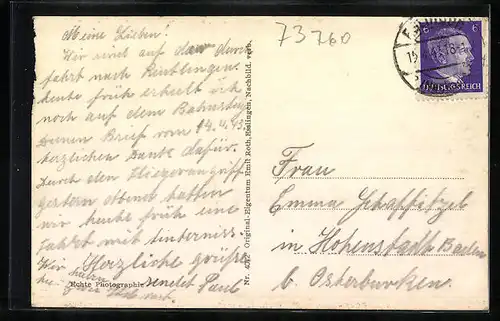 73760
Meine Lieben!
Wir sind auf der Durch
fahrt nach Reutlingen.
heute früh erhielt ich
noch auf dem Bahnsteig
Deinen Brief vom 14.4.43
herzlichen Dank dafür.
Durch den Fliegerangriff
gestern Abend hatten
wir heute früh eine
Fahrt mit Hinderniss.
Wir
Herzliche Grüße
sendet Paul
Echte Photographie
Nr. 412 Original-Eigentum Emil Roth, Eßlingen, Nachbild. verb.
6 6
DEUTSCHES REICH
Frau
Emma Schaffitzel
in Hohenstadt Baden
b. Osterburken.